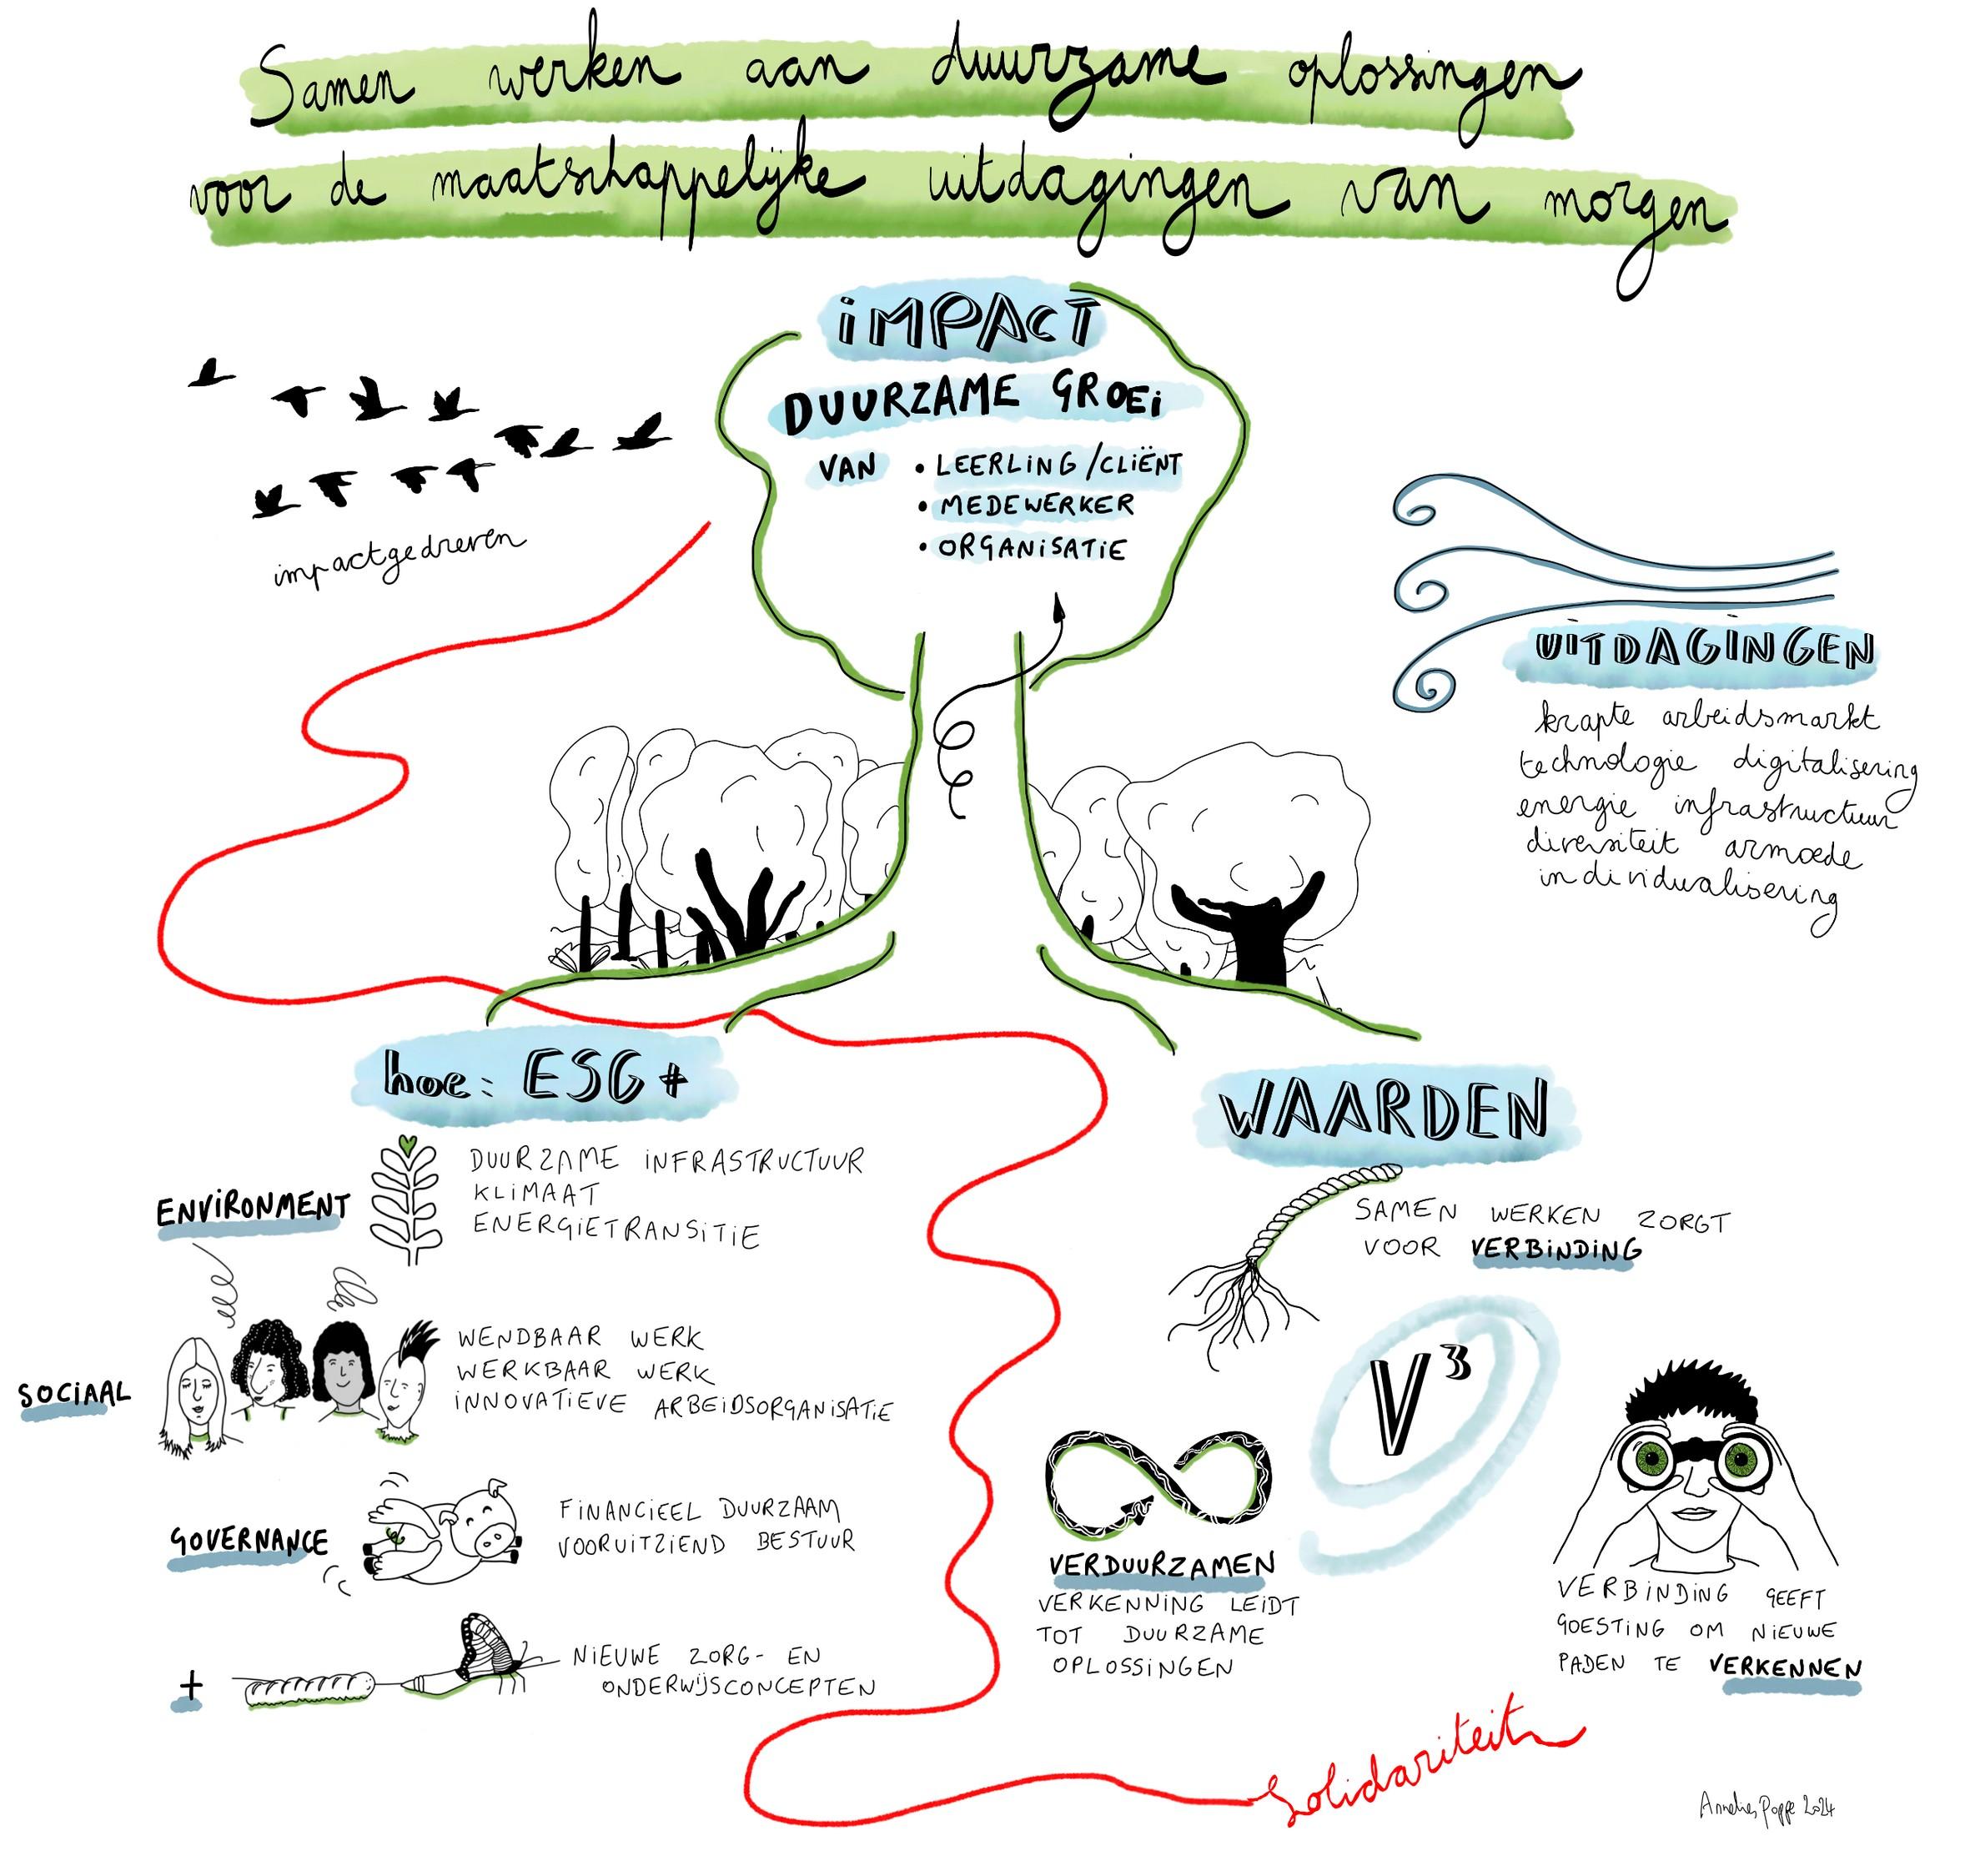 Samen werken aan duurzame oplossingen
voor de maatschappelijke uitdagingen van morgen
iMPACT
DUURZAME GROEi
VAN • LEERLiNG/CLiËNT
• MEDEWERKER
• ORGANiSATiE
impactgedreven
UiTDAGiNGEN
krapte arbeidsmarkt
technologie digitalisering
energie infrastructuur
diversiteit armoede
individualisering
hoe: ESG+
ENViRONMENT
DUURZAME iNFRASTRUCTUUR
KLiMAAT
ENERGiETRANSiTiE
SOCiAAL
WENDBAAR WERK
WERKBAAR WERK
iNNOVATiEVE ARBEiDSORGANiSATiE
GOVERNANCE
FiNANCiEEL DUURZAAM
VOORUiTZiEND BESTUUR
+
NiEUWE ZORG- EN
ONDERWiJSCONCEPTEN
WAARDEN
SAMEN WERKEN ZORGT
VOOR VERBiNDiNG
V³
VERDUURZAMEN
VERKENNiNG LEiDT
TOT DUURZAME
OPLOSSiNGEN
VERBiNDiNG GEEFT
GOESTiNG OM NiEUWE
PADEN TE VERKENNEN
Solidariteit
Annelies Poppe 2024